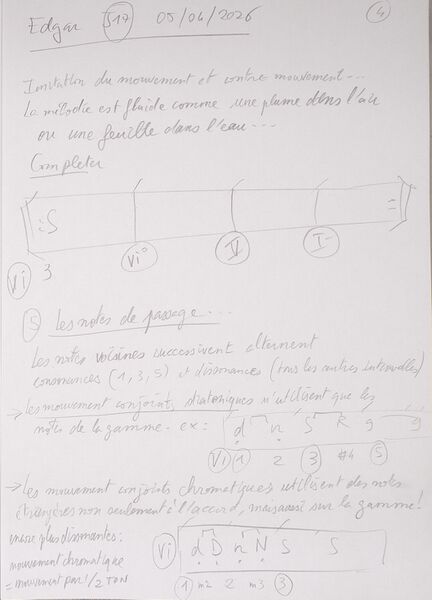 Edgar S17 05/04/2026 4
Imitation du mouvement et contre mouvement...
La mélodie est fluide comme une plume dans l'air
ou une feuille dans l'eau...
Completer
:S =
Vi 3 Vi° V I
5 Les notes de passage...
Les notes voisines successivent alternent
consonances (1, 3, 5) et dissonances (tous les autres intervalles)
→ Les mouvement conjoints diatoniques n'utilisent que les
notes de la gamme. ex: d n S R g g
Vi 1 2 3 #4 5
→ les mouvement conjoints chromatiques utilisent des notes
étrangères non seulement à l'accord, mais aussi sur la gamme!
encore plus dissonantes:
mouvement chromatique
= mouvement par 1/2 TON
Vi d D n N S S
1 m2 2 m3 3